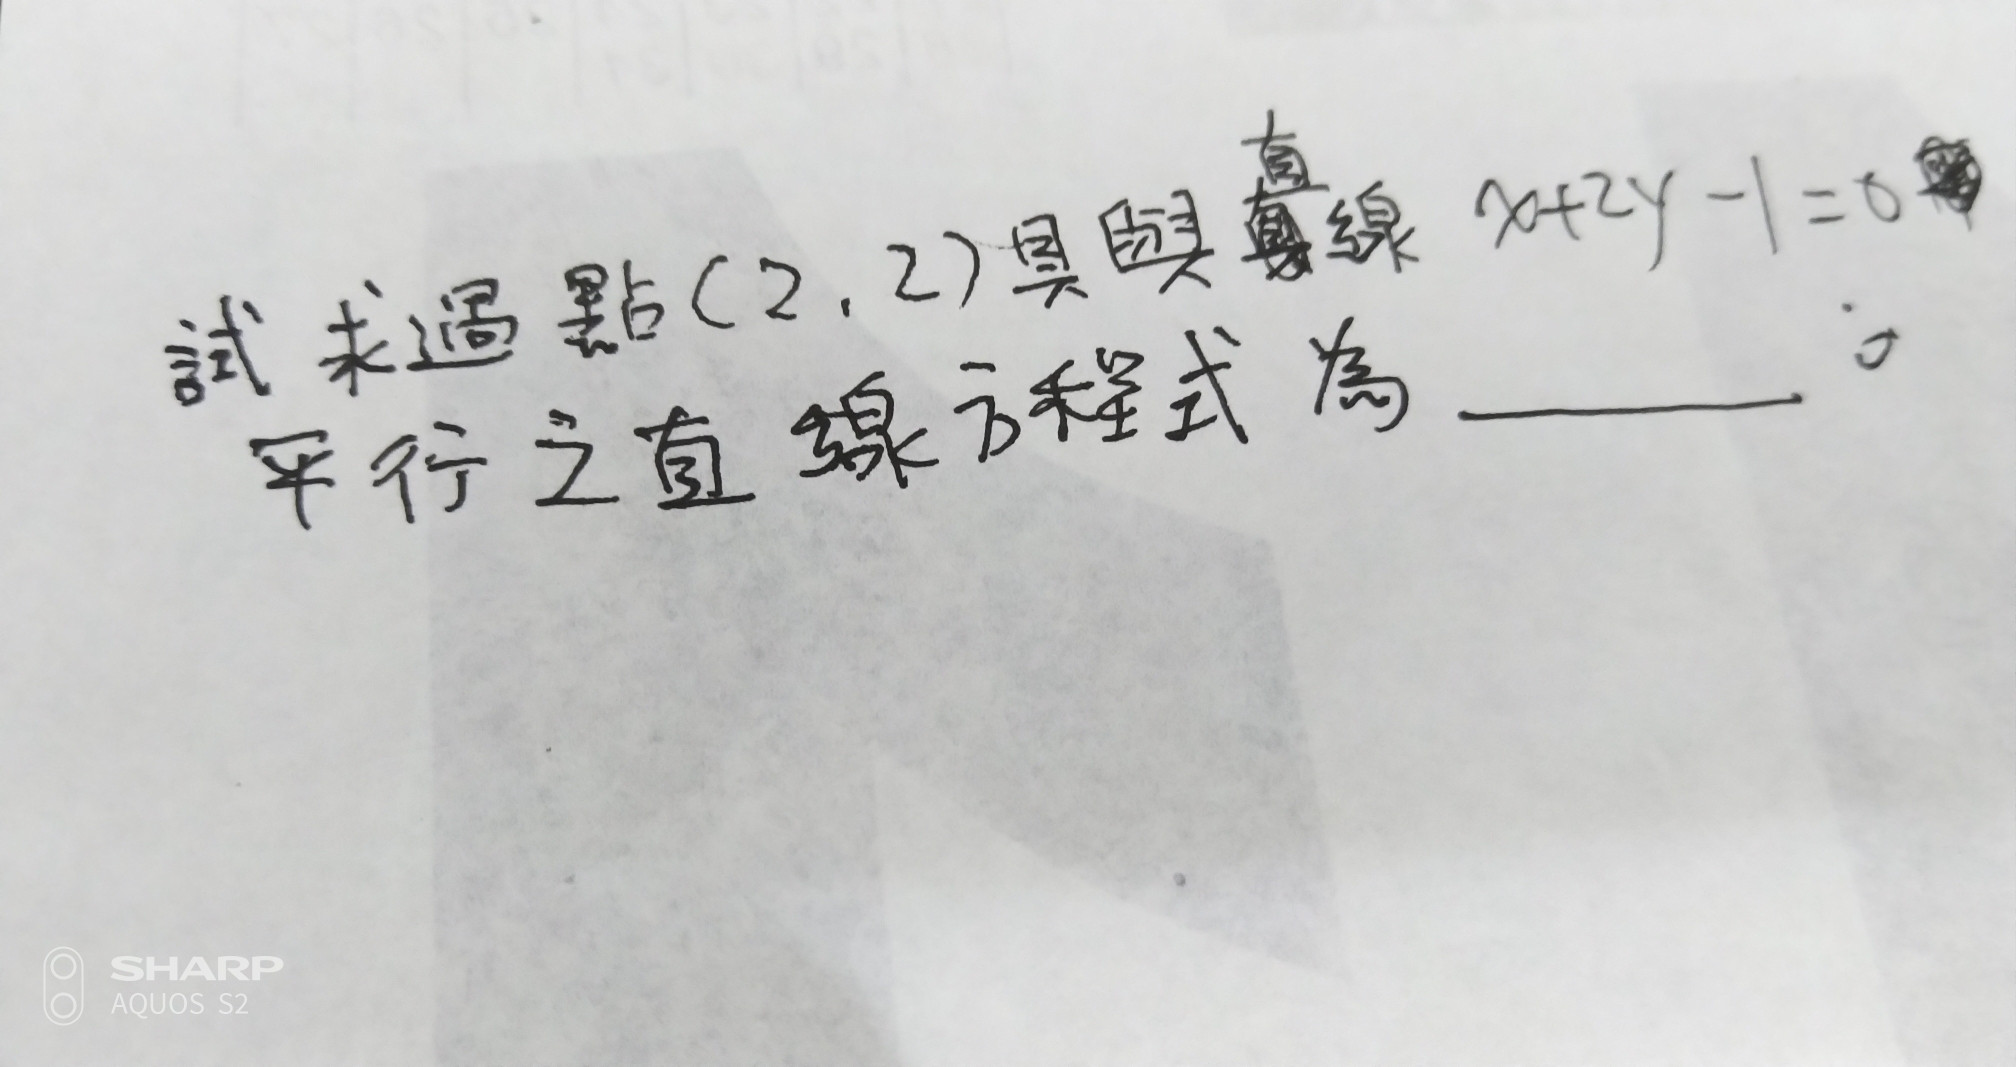 試求過點(2,2)具與直線 x+2y-1=0
平行之直線方程式為______。
SHARP
AQUOS S2